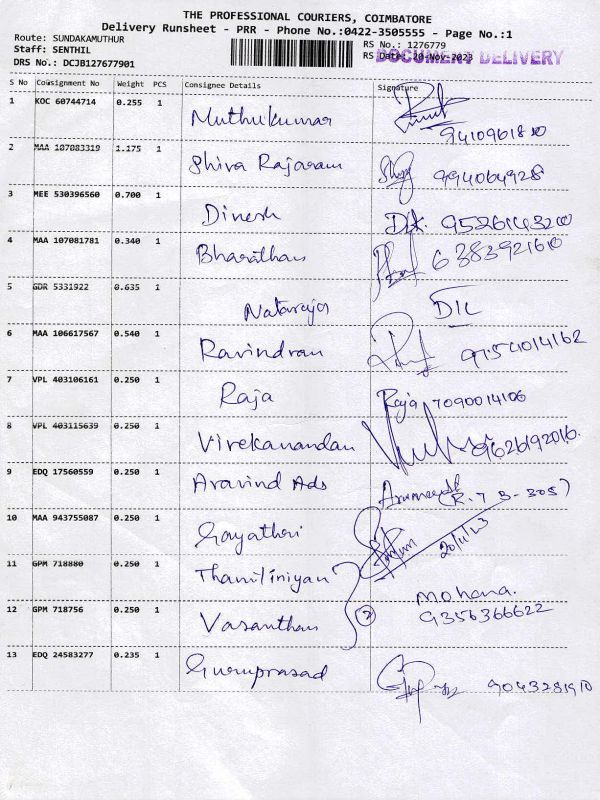 THE PROFESSIONAL COURIERS, COIMBATORE
Delivery Runsheet - PRR - Phone No.:0422-3505555 - Page No.:1
Route: SUNDAKAMUTHUR
Staff: SENTHIL
DRS No.: DCJB127677901
RS No.: 1276779
RS Date: 20-Nov-2023
DOCUMENT DELIVERY
S No Consignment No Weight PCS Consignee Details Signature
1 KOC 60744714 0.255 1 Muthukumar
2 MAA 107083319 1.175 1 Shiva Rajaram 994064928
3 MEE 530396560 0.700 1 Dinesh
4 MAA 107081781 0.340 1 Bharathan 6383921610
5 GDR 5331922 0.635 1 Natarajan
6 MAA 106617567 0.540 1 Ravindran
7 VPL 403106161 0.250 1 Raja Raja 7090014106
8 VPL 403115639 0.250 1 Vivekanandan 9626192016.
9 EDQ 17560559 0.250 1 Aravind Ads
10 MAA 943755087 0.250 1 Gayathri 20/11/23
11 GPM 718880 0.250 1 Thamiliniyan Mohana.
12 GPM 718756 0.250 1 Vasanthan 2 9356366622
13 EDQ 24583277 0.235 1 Guruprasad 9043281910